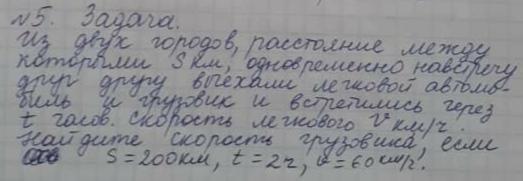 №5. Задача.
Из двух городов, расстояние между
которыми S км, одновременно навстречу
друг другу выехали легковой автомо-
биль и грузовик и встретились через
t часов. Скорость легкового V км/ч.
Найдите скорость грузовика, если
S=200км, t=2ч, v=60км/ч.